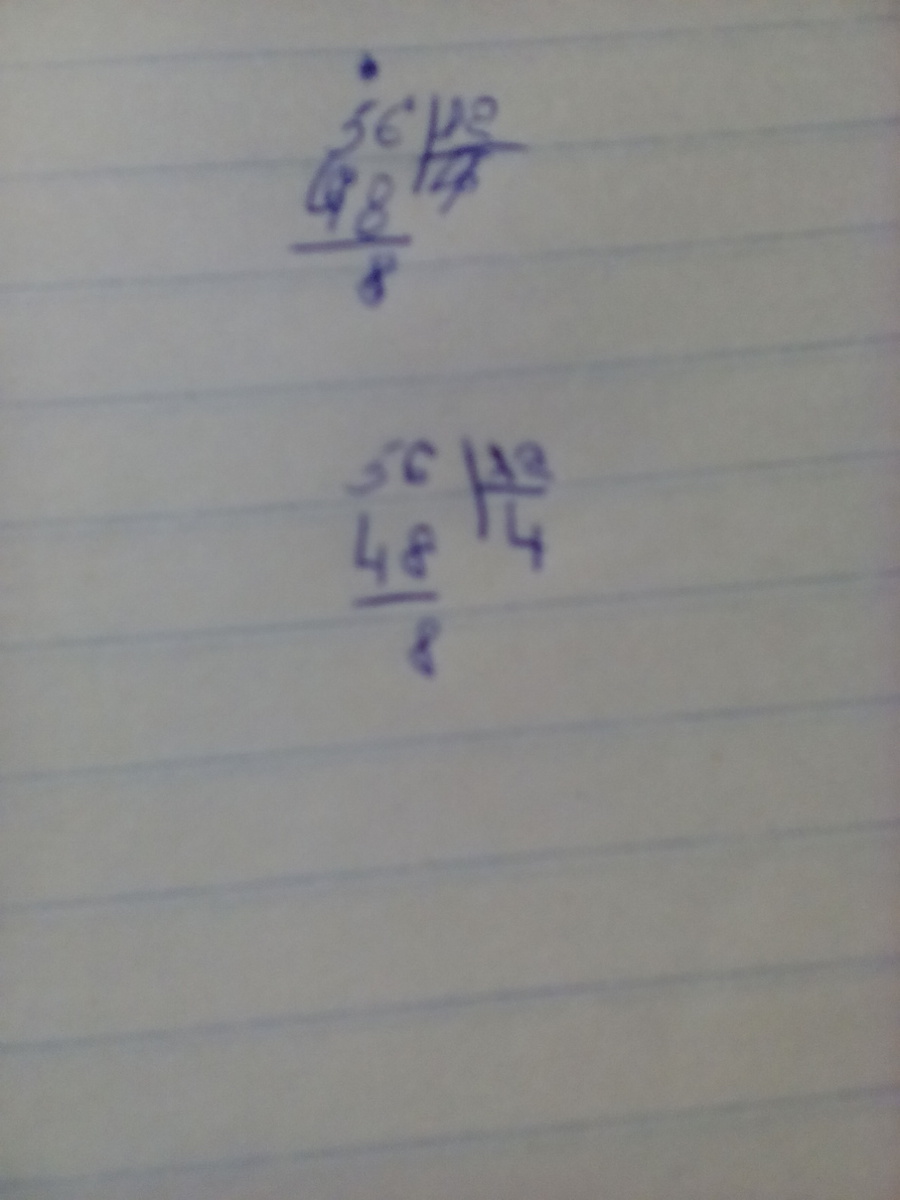 56 12
48 4
8
56 12
48 4
8